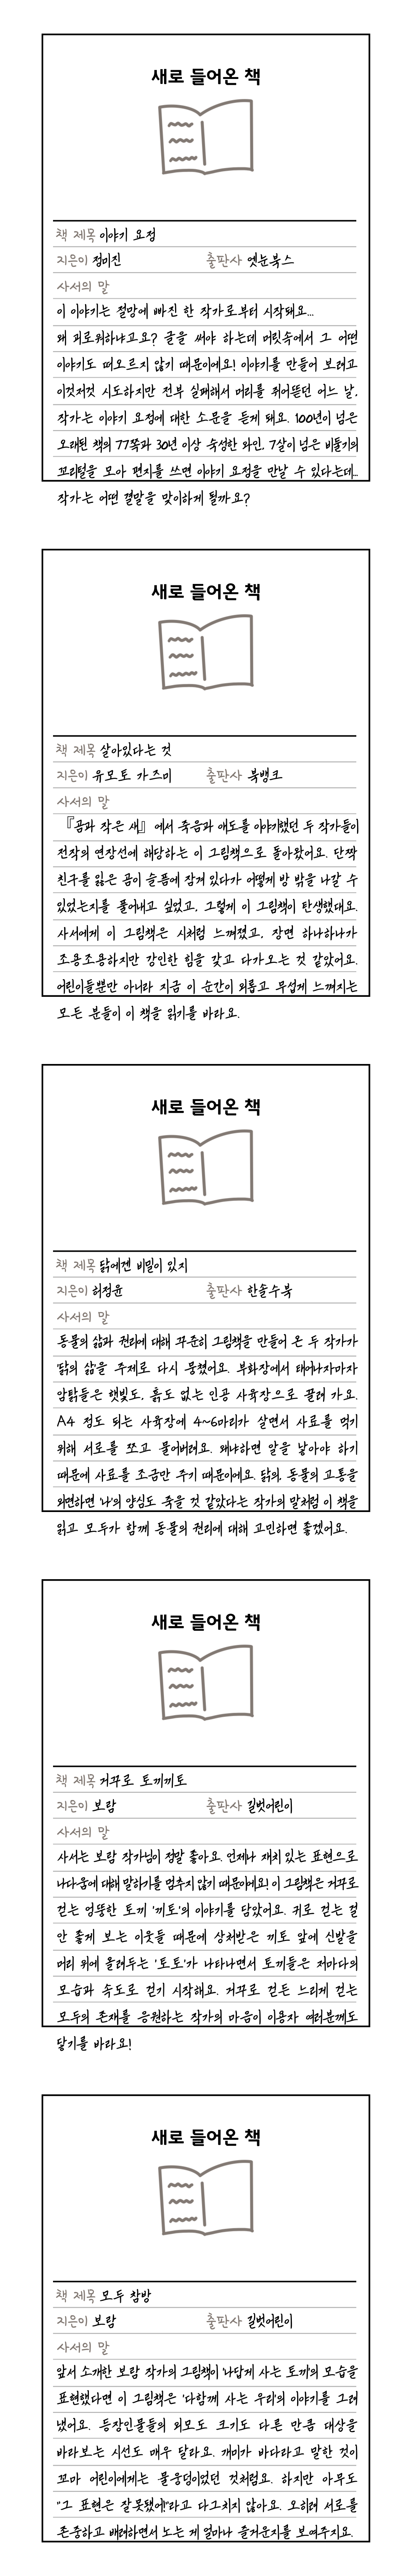 새로 들어온 책
책 제목 이야기 요정
지은이 정미진 출판사 엣눈북스
사서의 말
이 이야기는 절망에 빠진 한 작가로부터 시작돼요...
왜 괴로워하냐고요? 글을 써야 하는데 머릿속에서 그 어떤
이야기도 떠오르지 않기 때문이에요! 이야기를 만들어 보려고
이것저것 시도하지만 전부 실패해서 머리를 쥐어뜯던 어느 날,
작가는 이야기 요정에 대한 소문을 듣게 돼요. 100년이 넘은
오래된 책의 77쪽과 30년 이상 숙성한 와인, 7살이 넘은 비둘기의
꼬리털을 모아 편지를 쓰면 이야기 요정을 만날 수 있다는데..
작가는 어떤 결말을 맞이하게 될까요?
새로 들어온 책
책 제목 살아있다는 것
지은이 유모토 가즈미 출판사 북뱅크
사서의 말
『곰과 작은 새』에서 죽음과 애도를 이야기했던 두 작가들이
전작의 연장선에 해당하는 이 그림책으로 돌아왔어요. 단짝
친구를 잃은 곰이 슬픔에 잠겨 있다가 어떻게 방 밖을 나갈 수
있었는지를 풀어내고 싶었고, 그렇게 이 그림책이 탄생했대요.
사서에게 이 그림책은 시처럼 느껴졌고, 장면 하나하나가
조용조용하지만 강인한 힘을 갖고 다가오는 것 같았어요.
어린이들뿐만 아니라 지금 이 순간이 외롭고 무섭게 느껴지는
모든 분들이 이 책을 읽기를 바라요.
새로 들어온 책
책 제목 닭에겐 비밀이 있지
지은이 허정윤 출판사 한솔수북
사서의 말
동물의 삶과 권리에 대해 꾸준히 그림책을 만들어 온 두 작가가
'닭의 삶'을 주제로 다시 뭉쳤어요. 부화장에서 태어나자마자
암탉들은 햇빛도, 흙도 없는 인공 사육장으로 끌려 가요.
A4 정도 되는 사육장에 4~6마리가 살면서 사료를 먹기
위해 서로를 쪼고 물어버려요. 왜냐하면 알을 낳아야 하기
때문에 사료를 조금만 주기 때문이에요. 닭의, 동물의 고통을
외면하면 '나'의 양심도 죽을 것 같았다는 작가의 말처럼 이 책을
읽고 모두가 함께 동물의 권리에 대해 고민하면 좋겠어요.
새로 들어온 책
책 제목 거꾸로 토끼끼토
지은이 보람 출판사 길벗어린이
사서의 말
사서는 보람 작가님이 정말 좋아요. 언제나 재치 있는 표현으로
나다움에 대해 말하기를 멈추지 않기 때문이에요! 이 그림책은 거꾸로
걷는 엉뚱한 토끼 '끼토'의 이야기를 담았어요. 귀로 걷는 걸
안 좋게 보는 이웃들 때문에 상처받은 끼토 앞에 신발을
머리 위에 올려두는 '토토'가 나타나면서 토끼들은 저마다의
모습과 속도로 걷기 시작해요. 거꾸로 걷든 느리게 걷는
모두의 존재를 응원하는 작가의 마음이 이용자 여러분께도
닿기를 바라요!
새로 들어온 책
책 제목 모두 참방
지은이 보람 출판사 길벗어린이
사서의 말
앞서 소개한 보람 작가의 그림책이 '나답게 사는 토끼'의 모습을
표현했다면 이 그림책은 '다함께 사는 우리'의 이야기를 그려
냈어요. 등장인물들의 외모도 크기도 다른 만큼 대상을
바라보는 시선도 매우 달라요. 개미가 바다라고 말한 것이
꼬마 어린이에게는 물웅덩이었던 것처럼요. 하지만 아무도
"그 표현은 잘못됐어!"라고 다그치지 않아요. 오히려 서로를
존중하고 배려하면서 노는 게 얼마나 즐거운지를 보여주지요.